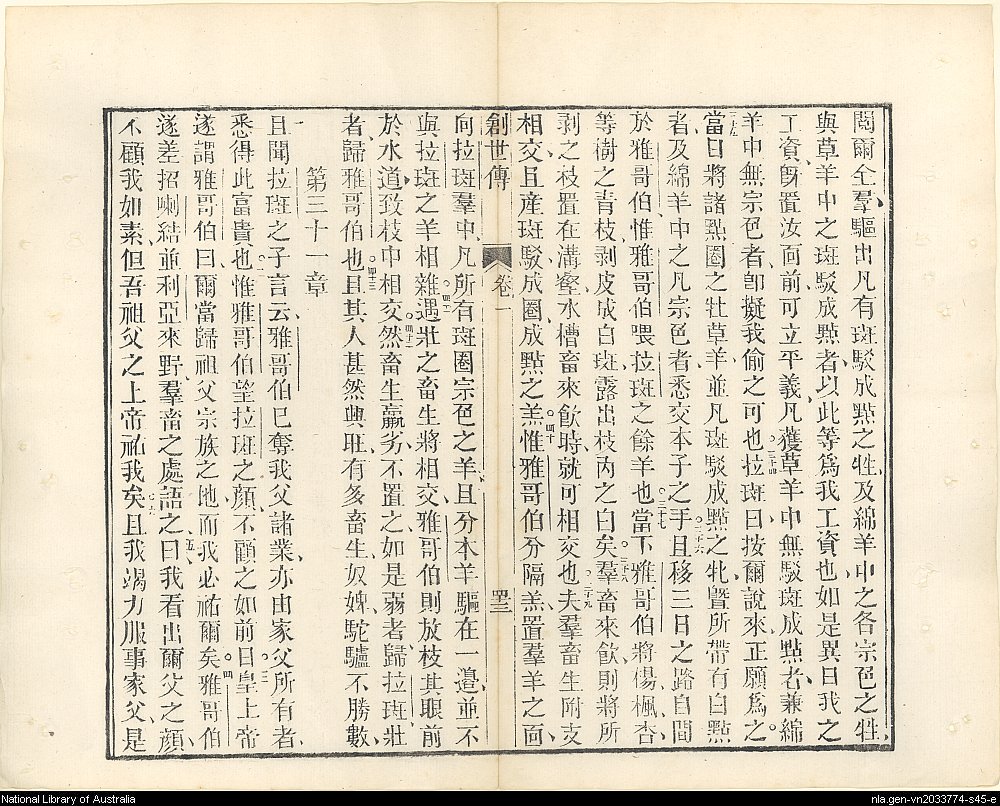 閱爾全羣驅出凡有斑駁成㸃之牲及綿羊中之各宗色之牲
與草羊中之斑駁成㸃者以此等爲我工資也如是異日我之
工資旣置汝面前可立平義凡獲草羊中無駁斑成㸃者兼綿
羊中無宗色者卽擬我偷之可也三十四拉斑曰按爾說來正願爲之
三十五當日將諸㸃圈之牡草羊並凡斑駁成㸃之牝曁所帶有白㸃
者及綿羊中之凡宗色者悉交本子之手三十六且移三日之路自間
於雅哥伯惟雅哥伯喂拉斑之餘羊也三十七當下雅哥伯將楊楓杏
等樹之青枝剥皮成白斑露出枝內之白矣三十八羣畜來飲則將所
剥之枝置在溝壑水槽畜來飲時就可相交也三十九夫羣畜生附支
相交且産斑駁成圈成㸃之羔四十惟雅哥伯分隔羔置羣羊之面
創世傳 卷一 四三
向拉斑羣中凡所有斑圈宗色之羊且分本羊驅在一邉並不
與拉斑之羊相雜四十一遇壯之畜生將相交雅哥伯則放枝其眼前
於水道致枝中相交四十二然畜生羸劣不置之如是弱者歸拉斑壯
者歸雅哥伯也四十三且其人甚然興旺有多畜生奴婢駝驢不勝數
第三十一章
一且聞拉斑之子言云雅哥伯已奪我父諸業亦由家父所有者
悉得此富貴也二惟雅哥伯望拉斑之顏不顧之如前日三皇上帝
遂謂雅哥伯曰爾當歸祖父宗族之地而我必祐爾矣四雅哥伯
遂差招喇結並利亞來野羣畜之處五語之曰我看出爾父之顏
不顧我如素但吾祖父之上帝祐我矣六七且我竭力服事家父是